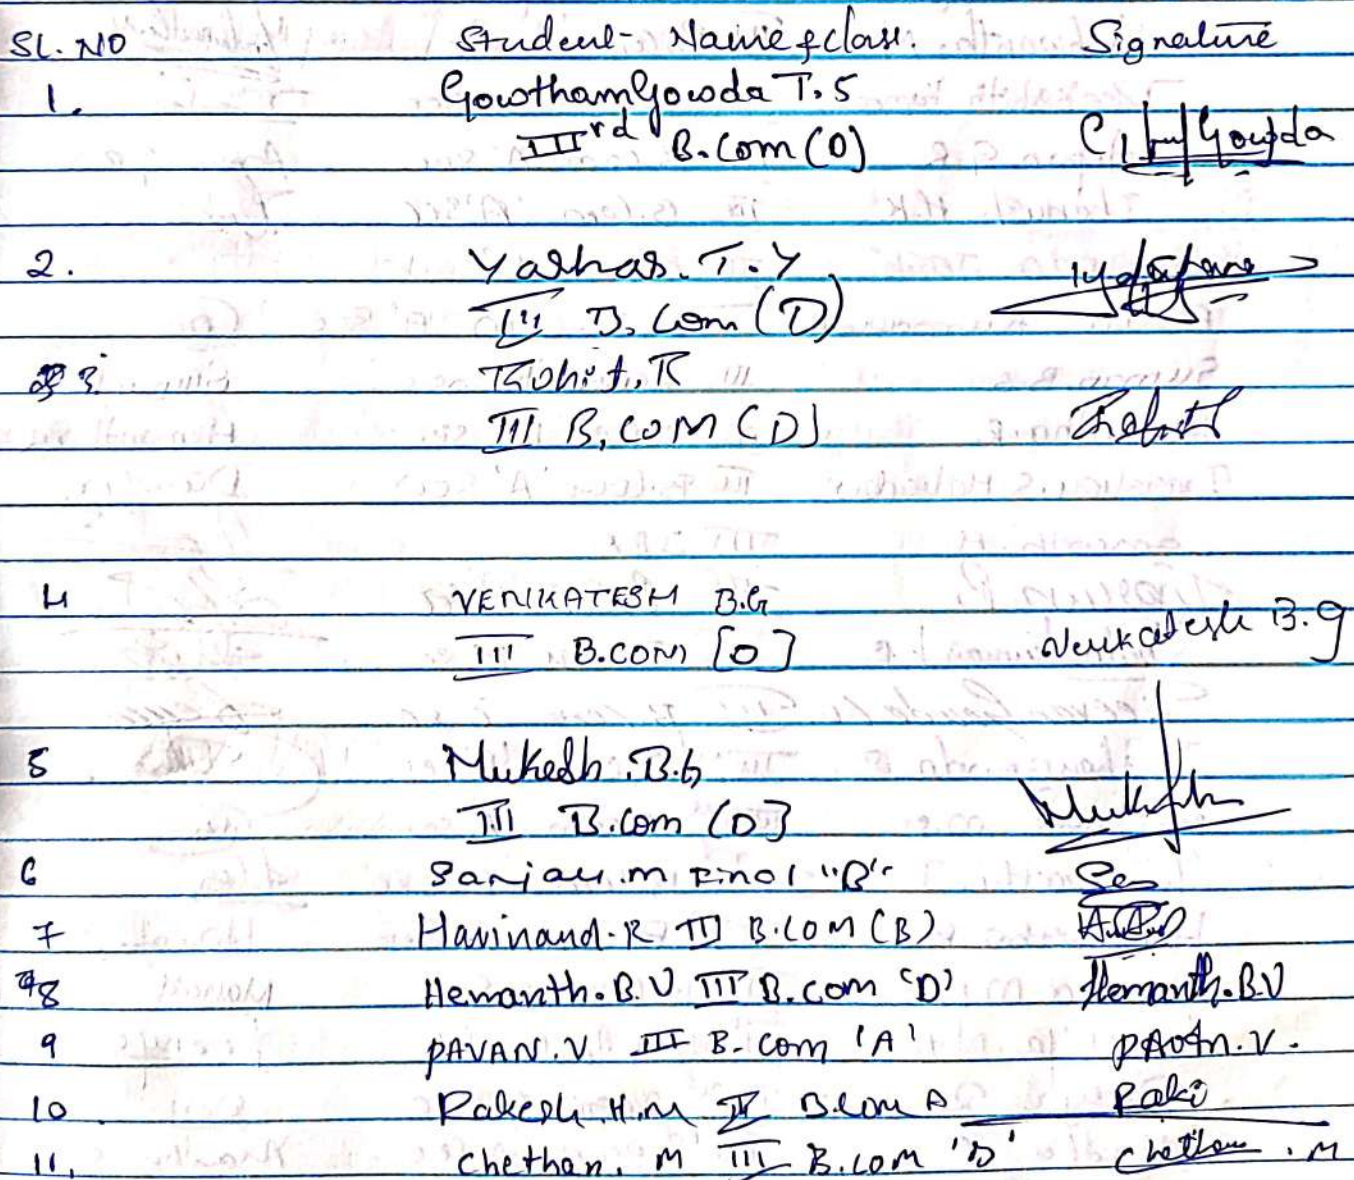 SL. NO Student Name & class. Signature
1. Gowtham Gowda T.S
IIIrd B.Com (D) Gowda
2. Yashas. T.Y
III B.Com (D)
3. Rohit. R
III B.COM (D)
4 VENKATESH B.G
III B.COM [D] Venkatesh B.G
5 Mukesh .B.G
III B.Com (D] Mukesh
6 Sanjay.M Final "B"
7 Harinand.R III B.COM (B)
8 Hemanth.B.V III B.com 'D' Hemanth.B.V
9 PAVAN.V. III B.Com 'A' PAVAN.V.
10 Rakesh.H.M B.Com A Raki
11. Chethan. M III B.COM 'D' Chethan . M